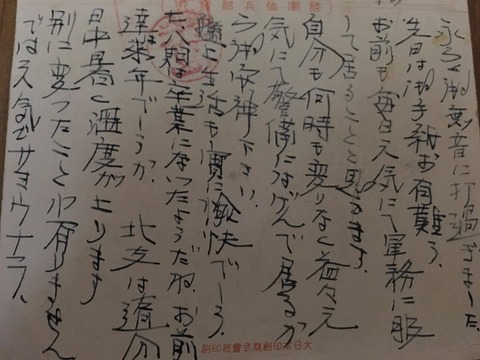 部兵恤軍陸
永らく御無音に打過ぎました。
先日は御手紙お有難う。
お前も毎日元気にて軍務に服
して居ることと思ます。
自分も何時も変りなく益々元
気にて警備にはげんで居るか
ら御安神下さい。
生活も実に愉快でしう
期は卒業になったようだね お前
達は来年でしうか。北支は随分
日中暑く温度が上ります
別に変ったことも有りません
では元気でサヨウナラ。
刷印社會式株刷印本日大